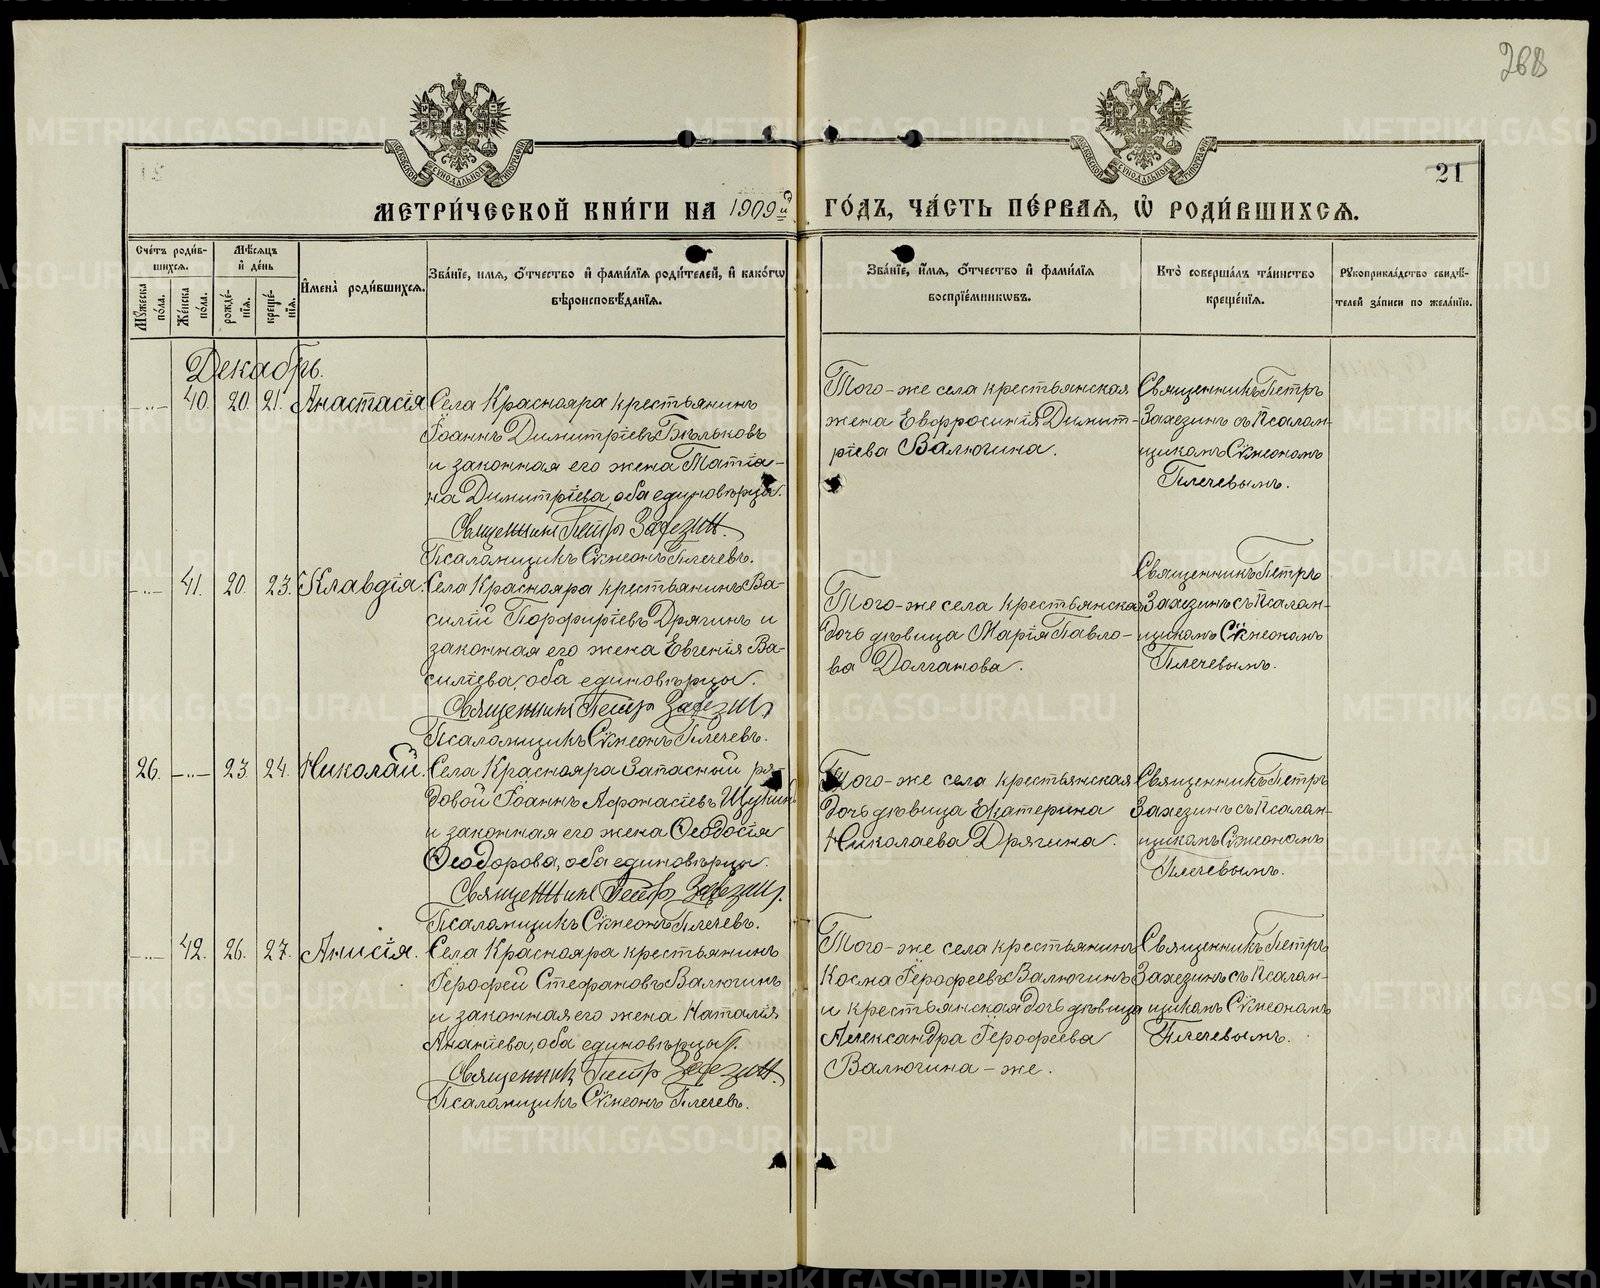 268
21
МЕТРИ́ЧЕСКОЙ КНИ́ГИ НА 1909й ГО́ДЪ, ЧА́СТЬ ПЕ́РВАЯ, Ѡ РОДИ́ВШИХСѦ.
Сче́тъ роди́в-
шихся.
Мѣ́сяцъ
и҆ де́нь
Мꙋ́жеска по́ла.
Же́нска по́ла.
рожде́-
нїѧ.
креще́-
нїѧ.
И҆мена̀ роди́вшихсѧ.
Зва́нїе, имѧ, ѻ҆́тчество и҆ фами́лїѧ роди́телей, и҆ како́гѡ
вѣроисповѣ́данїѧ.
Зва́нїе, и҆́мѧ, ѻ҆́тчество и҆ фами́лїѧ
воспрїе́мникѡвъ.
Кто̀ соверша́лъ та́инство
креще́нїѧ.
Рꙋкоприкла́дство свидѣ́-
телей за́писи по жела́нїю.
Декабрь.
40. 20. 21. Анастасія
Села Краснояра крестьянинъ
Іоаннъ Димитріевъ Бѣльковъ
и законная его жена Татіа-
на Димитріева, оба единовѣрцы.
Священникъ Петръ Захезинъ.
Псаломщикъ Сѵмеонъ Плечевъ.
Того-же села крестьянская
жена Евфросинія Димит-
ріева Валюгина.
Священникъ Петръ
Захезинъ съ Псалом-
щикомъ Сѵмеономъ
Плечевымъ.
41. 20. 23. Клавдія.
Села Краснояра крестьянинъ Ва-
силій Порфиріевъ Дрягинъ и
законная его жена Евгенія Ва-
силіева, оба единовѣрцы.
Священникъ Петръ Захезинъ
Псаломщикъ Сѵмеонъ Плечевъ.
Того-же села крестьянская
дочь дѣвица Марія Павло-
ва Долганова.
Священникъ Петръ
Захезинъ съ Псалом-
щикомъ Сѵмеономъ
Плечевымъ.
26. 23. 24. Николай.
Села Краснояра Запасный ря-
довой Іоаннъ Афонасіевъ Щукинъ
и законная его жена Ѳеодосія
Ѳеодорова, оба единовѣрцы.
Священникъ Петръ Захезинъ.
Псаломщикъ Сѵмеонъ Плечевъ.
Того-же села крестьянская
дочь дѣвица Екатерина
Николаева Дрягина.
Священникъ Петръ
Захезинъ съ Псалом-
щикомъ Сѵмеономъ
Плечевымъ.
42. 26. 27. Анисія.
Села Краснояра крестьянинъ
Іерофей Стефановъ Валюгинъ
и законная его жена Наталія
Ананіева, оба единовѣрцы.
Священникъ Петръ Захезинъ.
Псаломщикъ Сѵмеонъ Плечевъ.
Того-же села крестьянинъ
Косма Іерофеевъ Валюгинъ
и крестьянская дочь дѣвица
Александра Іерофеева
Валюгина-же.
Священникъ Петръ
Захезинъ съ Псалом-
щикомъ Сѵмеономъ
Плечевымъ.
METRIKI.GASO-URAL.RU